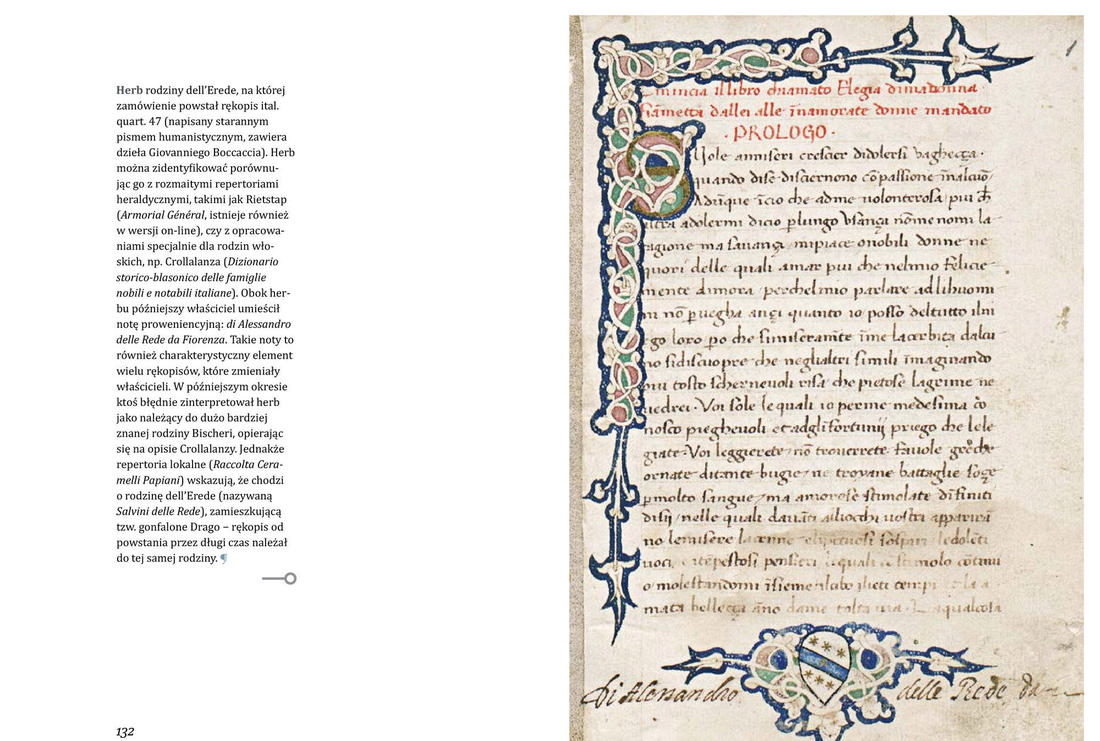 Herb rodziny dell'Erede, na której
zamówienie powstał rękopis ital.
quart. 47 (napisany starannym
pismem humanistycznym, zawiera
dzieła Giovanniego Boccaccia). Herb
można zidentyfikować porównu-
jąc go z rozmaitymi repertoriami
heraldycznymi, takimi jak Rietstap
(Armorial Général, istnieje również
w wersji on-line), czy z opracowa-
niami specjalnie dla rodzin wło-
skich, np. Crollalanza (Dizionario
storico-blasonico delle famiglie
nobili e notabili italiane). Obok her-
bu późniejszy właściciel umieścił
notę proweniencyjną: di Alessandro
delle Rede da Fiorenza. Takie noty to
również charakterystyczny element
wielu rękopisów, które zmieniały
właścicieli. W późniejszym okresie
ktoś błędnie zinterpretował herb
jako należący do dużo bardziej
znanej rodziny Bischeri, opierając
się na opisie Crollalanzy. Jednakże
repertoria lokalne (Raccolta Cera-
melli Papiani) wskazują, że chodzi
o rodzinę dell'Erede (nazywaną
Salvini delle Rede), zamieszkującą
tzw. gonfalone Drago – rękopis od
powstania przez długi czas należał
do tej samej rodziny. ¶
132
1
illibro chiamato Elegia dimadonna
fiāmetta dallei alle īnamorate donne mandato
· PROLOGO ·
Uole amiseri crescier didolersi vaghecça ·
quando dise disciernono cōpassione
che adme volonterosa piu
adolermi dicio plungo
agione ma mipiace onobili donne ne
quori delle quali amar piu che nelmio felicie
mente dimora perchelmio parlare
quanto io posso deltutto
ego loro po che
che neglialtri simili imaginando
piu tosto schernevoli risa che pietose lagrime ne
vedrei · Voi sole le quali io perme medesima co
nosco pieghevoli priego che le le
giate · Voi leggierete nō troverrete favole
ornate ditante bugie ne troyane battaglie
pmolto sangue ma amorose stimolate
nelle quali
no lemisere
uoci pensieri
o molestandomi
mata bellecça
di Alessandro delle Rede da